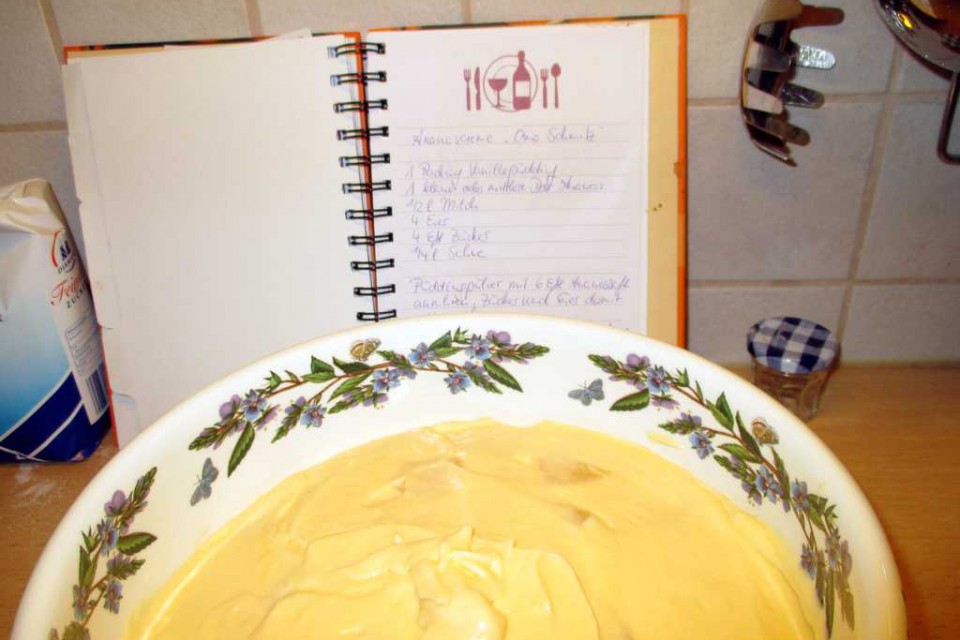 Ananascreme „Oma Schmitz"
1 Päckchen Vanillepudding
1 kleine oder mittlere Dose Ananas
1/2 l Milch
4 Eier
4 EL Zucker
1/4 l Sahne
Puddingpulver mit 6 EL Ananassaft
anrühren, Zucker und Eier damit